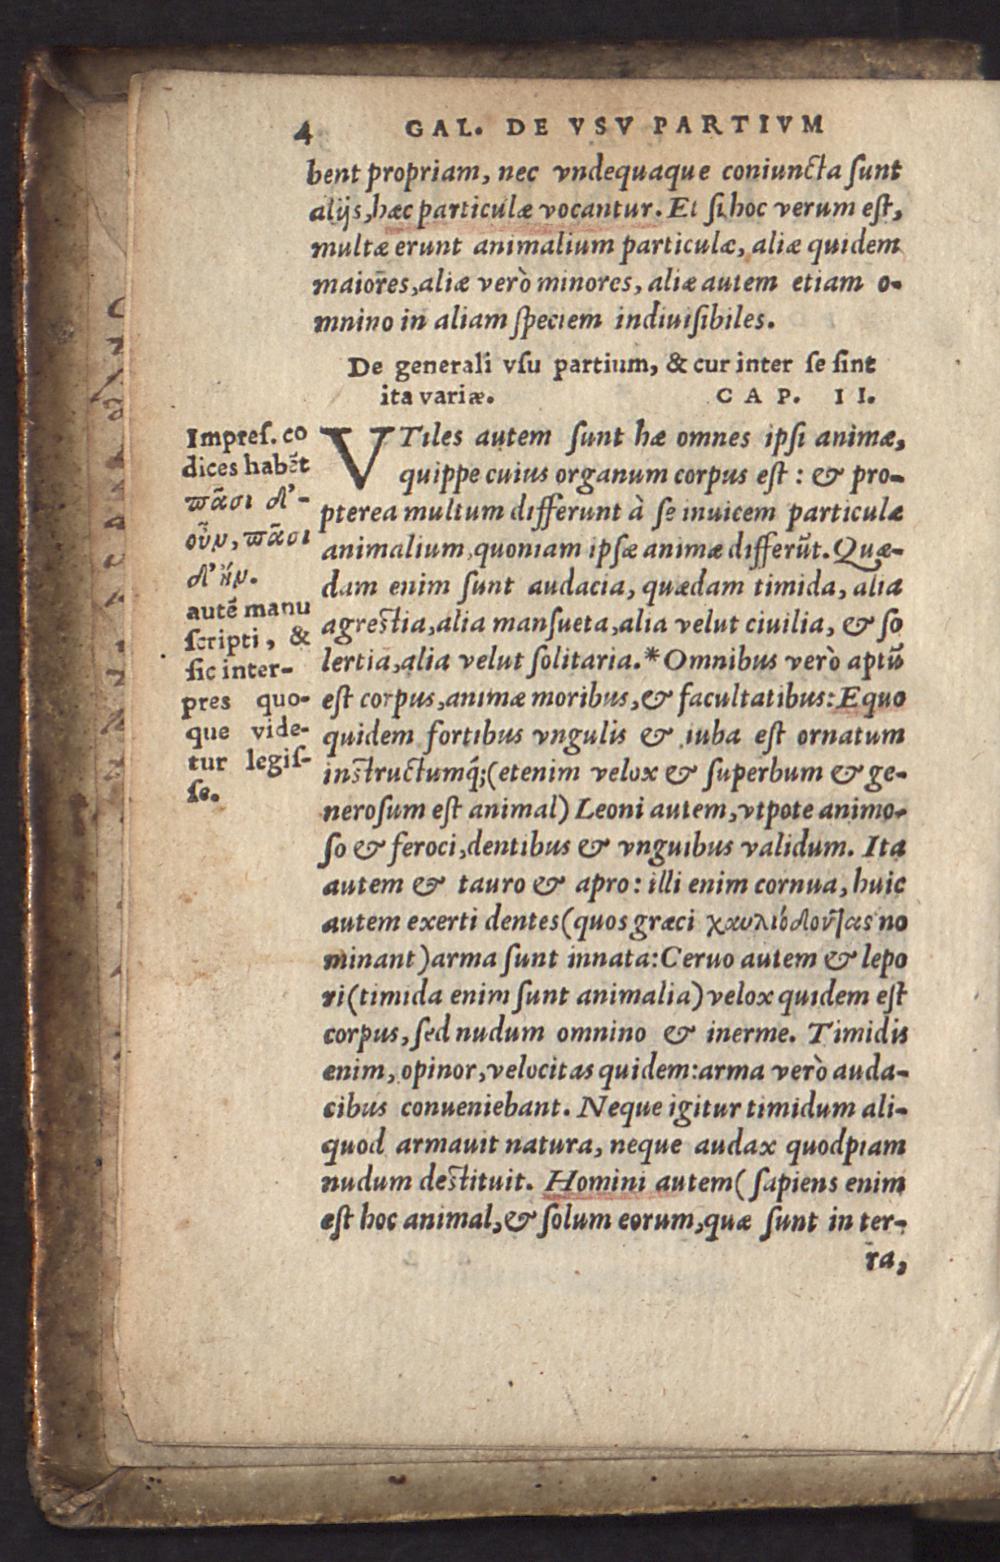 4 GAL. DE VSV PARTIVM
bent propriam, nec vndequaque coniuncta ſunt
alijs, hæc particulæ vocantur. Et ſi hoc verum eſt,
multæ erunt animalium particulæ, aliæ quidem
maiores, aliæ verò minores, aliæ autem etiam o-
mnino in aliam ſpeciem indiuiſibiles.
De generali vſu partium, & cur inter ſe ſint
ita variæ. CAP. II.
VTiles autem ſunt hæ omnes ipſi animæ,
quippe cuius organum corpus eſt: & pro-
pterea multum differunt à ſe inuicem particulæ
animalium, quoniam ipſæ animæ differũt. Quæ-
dam enim ſunt audacia, quædam timida, alia
agreſtia, alia manſueta, alia velut ciuilia, & ſo
lertia, alia velut ſolitaria. * Omnibus verò aptũ
eſt corpus, animæ moribus, & facultatibus: Equo
quidem fortibus vngulis & iuba eſt ornatum
inſtructumq́; (etenim velox & ſuperbum & ge-
neroſum eſt animal) Leoni autem, vtpote animo-
ſo & feroci, dentibus & vnguibus validum. Ita
autem & tauro & apro: illi enim cornua, huic
autem exerti dentes (quos græci χαυλιόδοντας no
minant) arma ſunt innata: Ceruo autem & lepo
ri (timida enim ſunt animalia) velox quidem eſt
corpus, ſed nudum omnino & inerme. Timidis
enim, opinor, velocitas quidem: arma verò auda-
cibus conueniebant. Neque igitur timidum ali-
quod armauit natura, neque audax quodpiam
nudum deſtituit. Homini autem (ſapiens enim
eſt hoc animal, & ſolum eorum, quæ ſunt in ter-
ra,
Impreſ. co
dices habẽt
πᾶσι δ'
οὖν, πᾶσι
δ' ἦν.
autẽ manu
ſcripti, &
ſic inter-
pres quo-
que vide-
tur legiſ-
ſe.